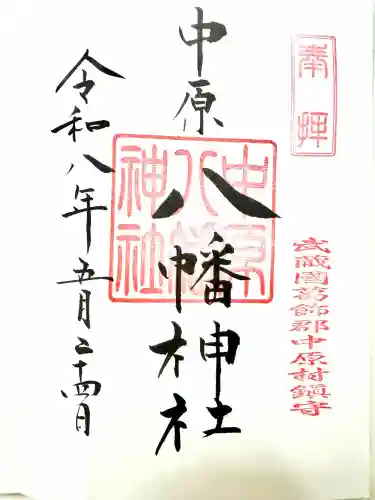 奉拝
武蔵國葛飾郡中原村鎮守
中原
八幡神社
中原八幡神社
令和八年五月二十四日